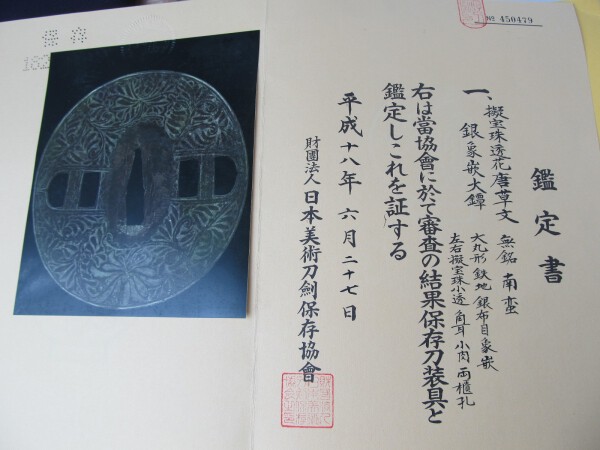 保存
182
№ 450479
鑑定書
一、擬宝珠透花唐草文 無銘 南蛮
銀象嵌大鐔
大丸形 鉄地 銀布目象嵌
左右擬宝珠小透 角耳 小肉 両櫃孔
右は當協會に於て審査の結果保存刀装具と
鑑定しこれを証する
平成十八年六月二十七日
財團法人日本美術刀劍保存協會